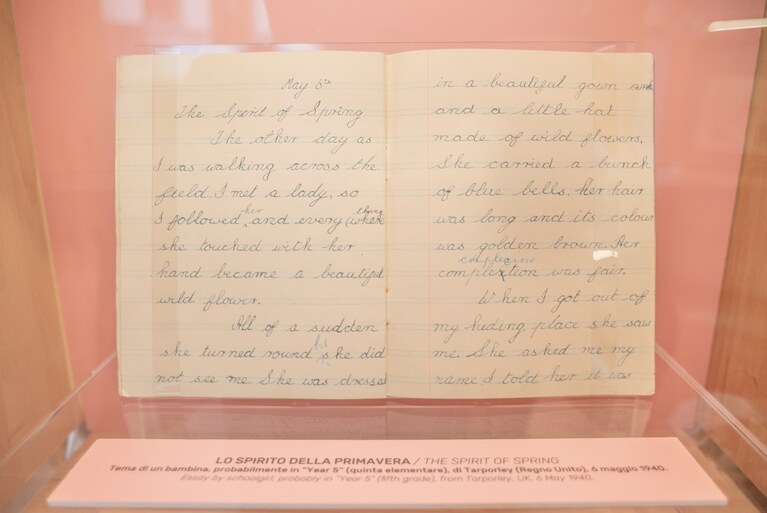 May 6th
The Spirit of Spring
The other day as
I was walking across the
field I met a lady, so
I followed her and every (where thing
she touched with her
hand became a beautiful
wild flower.
All of a sudden
she turned round she did
not see me She was dressed
in a beautiful gown and
and a little hat
made of wild flowers.
She carried a bunch
of blue bells. Her hair
was long and its colour
was golden brown. Her
complexion was fair.
When I got out of
my hiding place she saw
me. She asked me my
name I told her it was
LO SPIRITO DELLA PRIMAVERA / THE SPIRIT OF SPRING
Tema di un bambina, probabilmente in "Year 5" (quinta elementare), di Tarporley (Regno Unito), 6 maggio 1940.
Essay by schoolgirl, probably in "Year 5" (fifth grade), from Tarporley, UK, 6 May 1940.